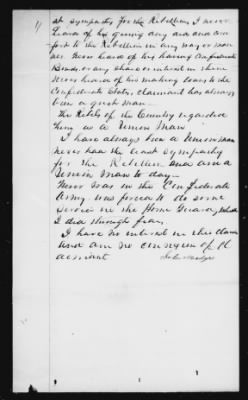 11
et sympathy for the Rebellion I never
heard of his giving any aid and com
fort to the Rebellion in any way or man
ner. Never heard of his having Confederate
Bonds or any share or interest in them
Never heard of his making loans to the
Confederate States, claimant has always
been a good man—
The Rebels of the Country regarded
him as a Union Man
I have always been a Union man
never had the least sympathy
for the Rebellion and am a
Union Man to day—
Never was in the Confederate
Army was forced to do some
service in the Home Guard, which
I did through fear,
I have no interest in this claim
and am no of Cl
aimant